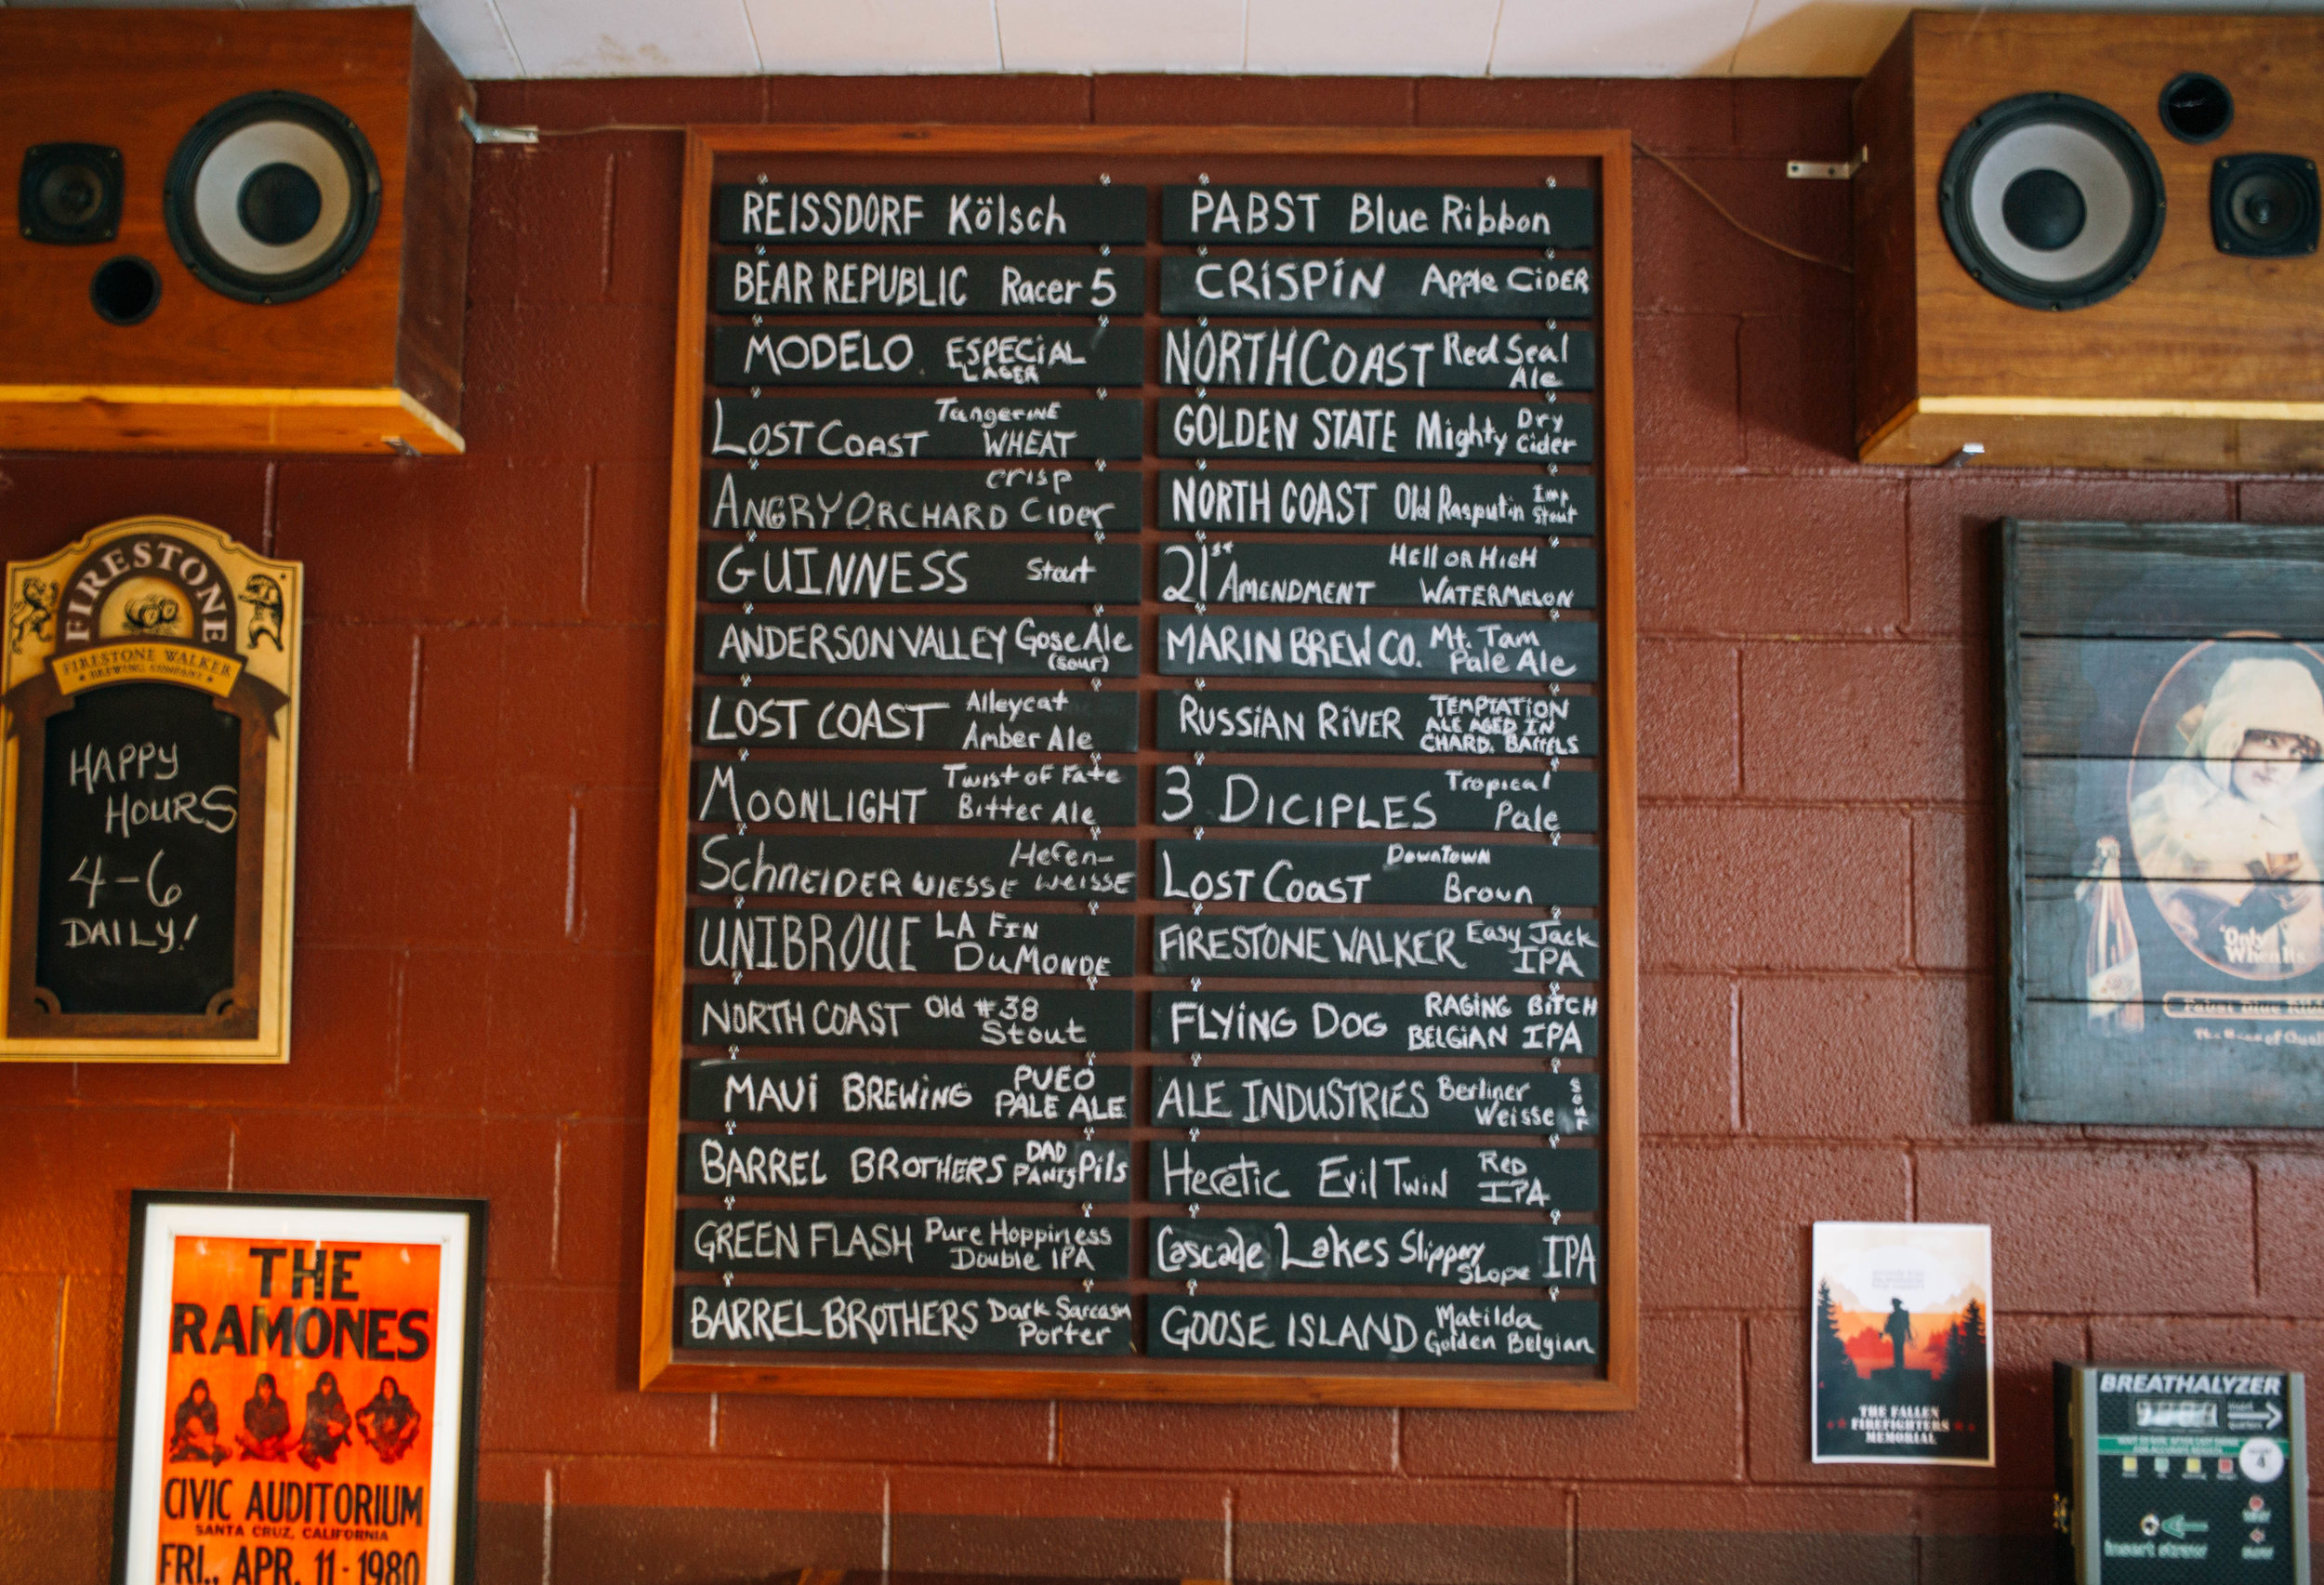 REISSDORF Kölsch
BEAR REPUBLIC Racer 5
MODELO ESPECiAL
LAGER
Tangerine
LOST COAST WHEAT
crisp
ANGRY ORCHARD CIDer
GUINNESS Stout
ANDERSON VALLEY Gose Ale
(sour)
LOST COAST Alleycat
Amber Ale
MOONLIGHT Twist of Fate
Bitter Ale
Hefen-
SchNEIDER WIESSE WEISSE
UNIBROUE LA FIN
DuMONDE
NORTH COAST Old #38
Stout
MAUi BREWiNG PUEO
PALE ALE
BARREL BROTHERS DAD
PANTS Pils
GREEN FLASH Pure Hoppiness
Double IPA
BARREL BROTHERS Dark Sarcasm
Porter
PABST Blue Ribbon
CRiSPiN Apple CiDER
NORTH COAST Red Seal
Ale
GOLDEN STATE Mighty Dry
Cider
NORTH COAST Old Rasputin Imp.
Stout
21st AMENDMENT HEll OR HIGH
WATERMELON
MARIN BREW CO. Mt. Tam
Pale Ale
RUSSIAN RiVER TEMPTATION
ALE AGED IN
CHARD. BARRELS
3 DICIPLES Tropical
Pale
LOST COAST DOWNTOWN
Brown
FIRESTONE WALKER Easy Jack
IPA
FLYiNG DOG RAGiNG BiTCH
BELGiAN IPA
ALE INDUSTRIES Berliner
Weisse Sour
Heretic Evil Twin RED
IPA
Cascade Lakes Slippery
SLOPE IPA
GOOSE ISLAND Matilda
Golden Belgian
FIRESTONE
FIRESTONE WALKER
BREWING COMPANY
HAPPY
HOURS
4-6
DAILY!
THE
RAMONES
CIVIC AUDITORIUM
SANTA CRUZ, CALIFORNIA
FRI., APR. 11-1980
"Only
When It's
Pabst Blue
THE FALLEN
FIREFIGHTERS
MEMORIAL
BREATHALYZER
insert straw